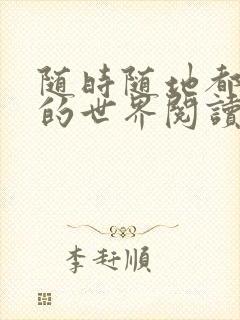 随時随地都
的世界閱讀
李玨順